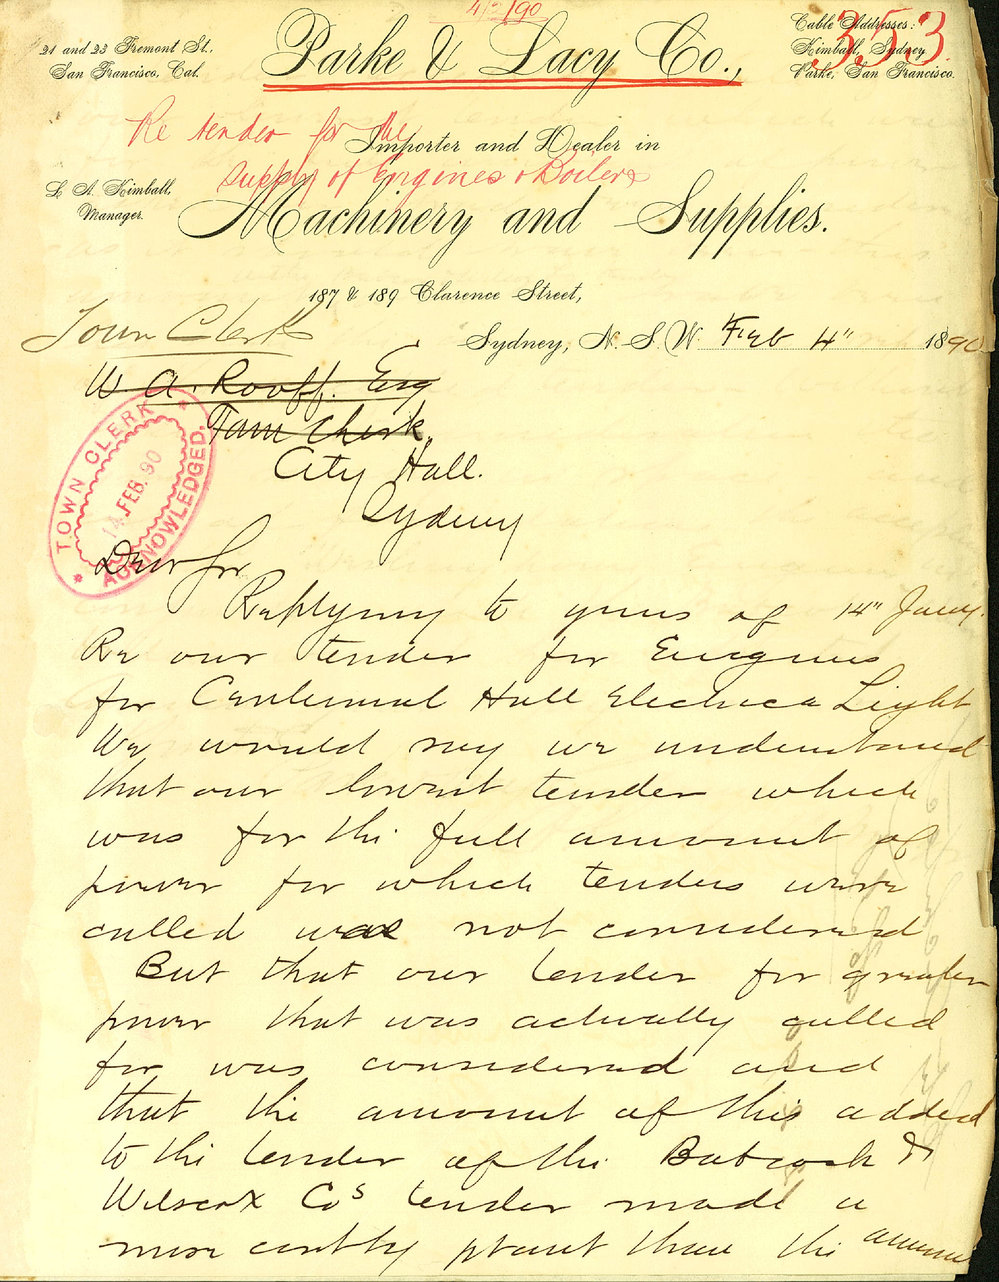 4/2/90
353
21 and 23 Fremont St.,
San Francisco, Cal.
Parke & Lacy Co.,
Cable Addresses:
Kimball, Sydney
Parke, San Francisco.
Re tender for the
supply of Engines & Boilers
Importer and Dealer in
L A. Kimball,
Manager.
Machinery and Supplies.
187 & 189 Clarence Street,
Town Clerk
Sydney, N. S. W. Feb 4" 1890
W A. Rooff. Esq
Town Clerk,
City Hall.
Sydney
TOWN CLERK
14 FEB. 90
ACKNOWLEDGED.
Dear Sir
Replying to yours of 14" Jany.
Re our tender for Engines
for Centennial Hall Electrica Light
We would say we understand
that our lowest tender which
was for the full amount of
power for which tenders were
called was not considered
But that our tender for greater
power that was actually called
for was considered and
that the amount of this added
to the tender of the Babcock &
Wilcox Cos tender made a
more costly plant than the